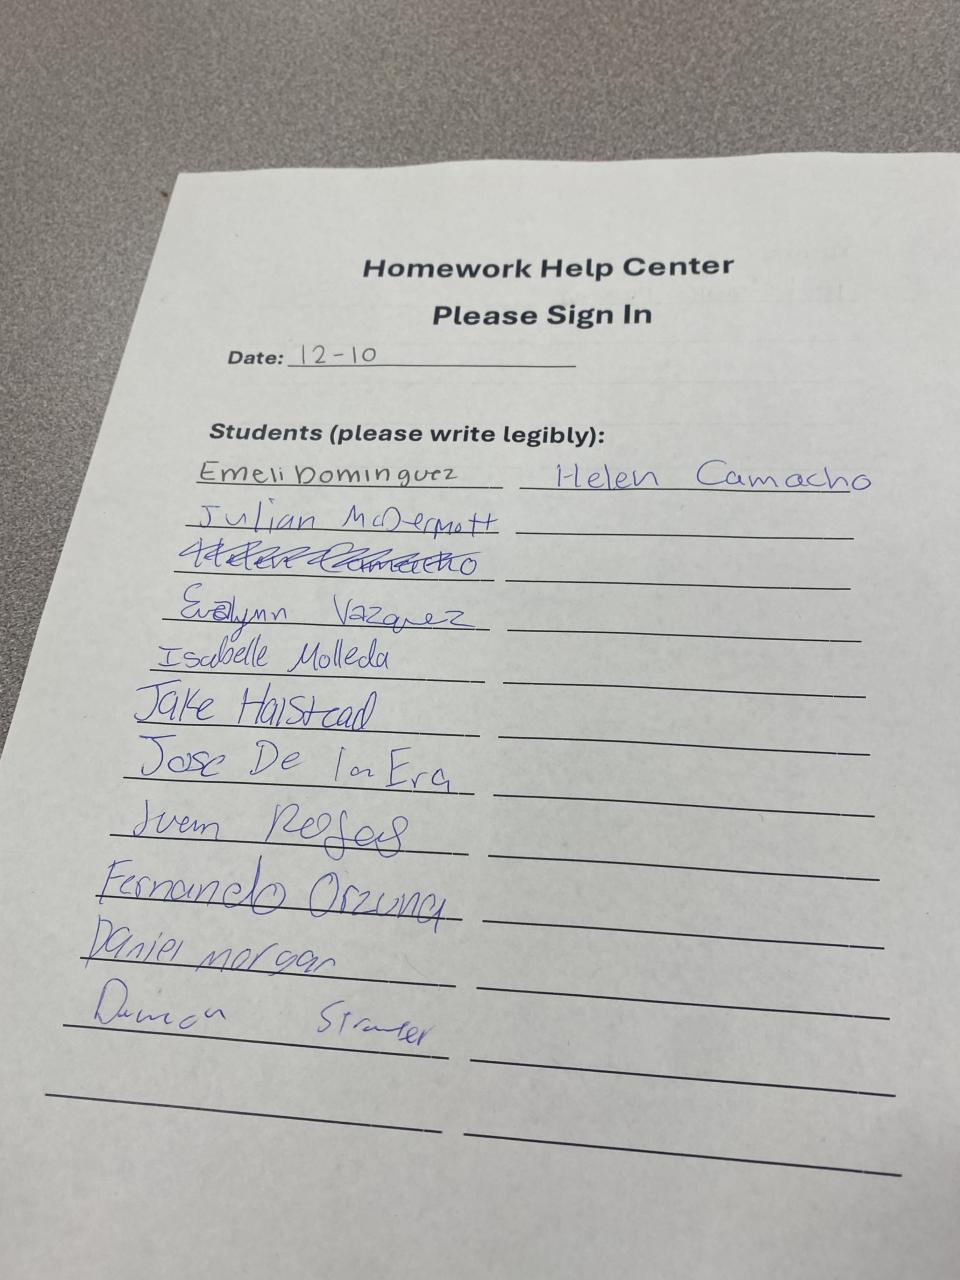 Homework Help Center
Please Sign In
Date: 12-10
Students (please write legibly):
Emeli Dominguez Helen Camacho
Julian McDermott
Evelynn Vazquez
Isabelle Molleda
Jake Halstead
Jose De la Era
Juan Rojas
Fernando Orzuna
Daniel morgan